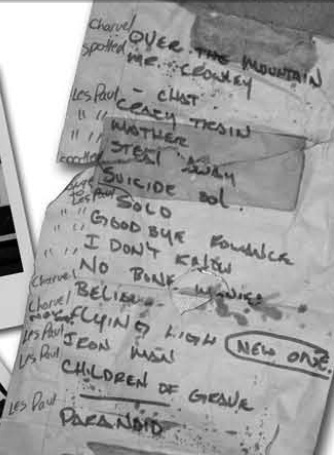 Charvel OVER THE MOUNTAIN
spotted MR. CROWLEY
Les Paul - CHAT
" " CRAZY TRAIN
" " MOTHER
STEAL AWAY
spotted SUICIDE SOL.
Les Paul SOLO
" " GOODBYE ROMANCE
" " I DON'T KNOW
Charvel NO BONE MOVIES
Charvel BELIEVER
FLYING HIGH NEW ONE.
Les Paul IRON MAN
Les Paul CHILDREN OF GRAVE
Les Paul PARANOID